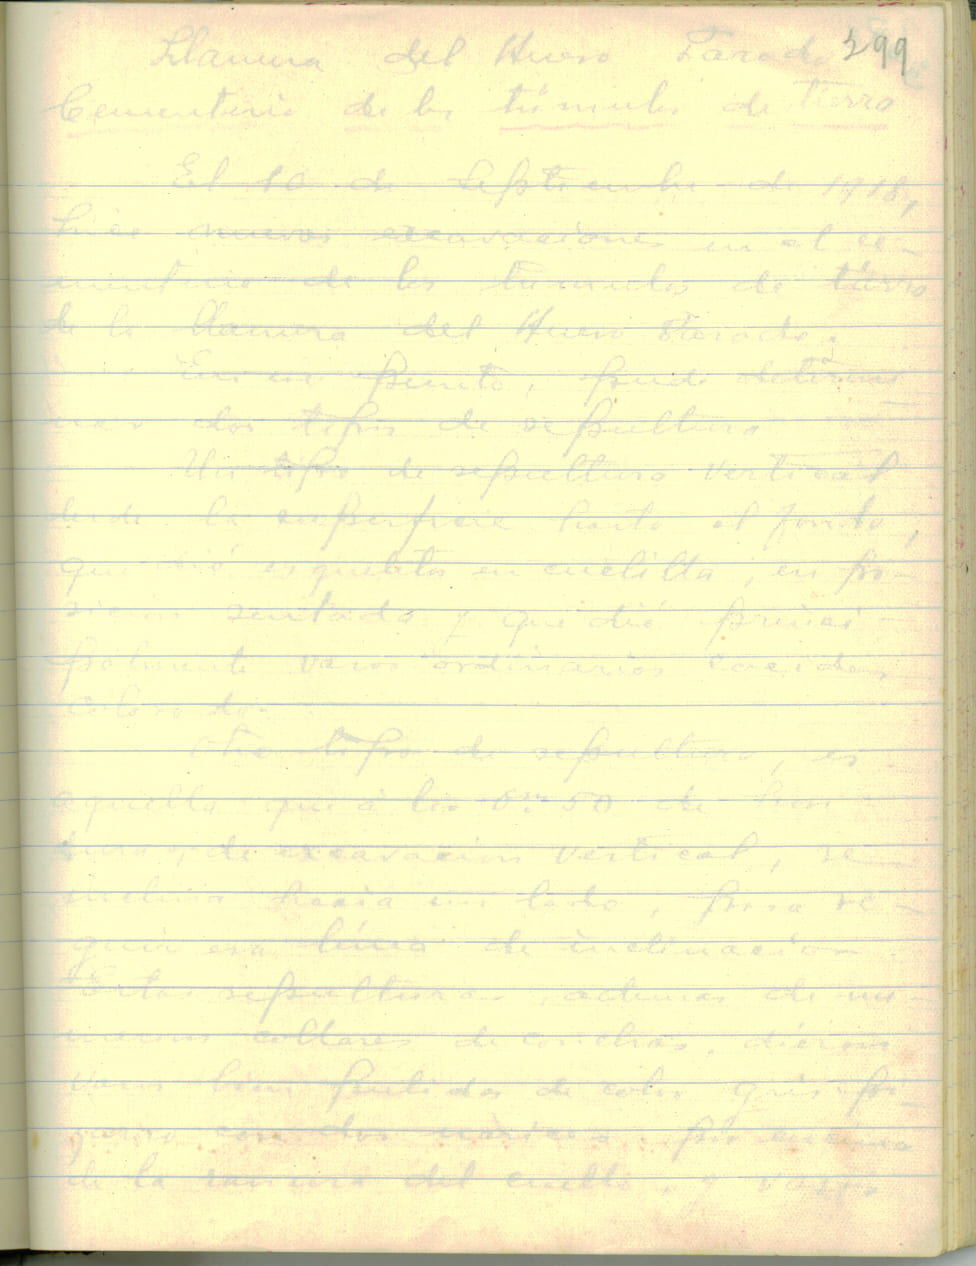 Llanura del Hueso Parado 299
Cementerio de los túmulos de tierra
El 10 de Septiembre de 1918,
hice nuevas excavaciones en el ce-
menterio de los túmulos de tierra
de la llanura del Hueso Parado.
En ese punto, pude determi-
nar dos tipos de sepultura
Un tipo de sepultura vertical
desde la superficie hasta el fondo,
que dió esqueletos en cuclilla, en po-
sicion sentada y que dió princi-
palmente vasos ordinarios cocidos
colorado.
Otro tipo de sepultura, es
aquella que á los 0m.50 de
de excavacion vertical, se
inclina hacia un lado, para se-
guir esa línea de inclinacion.
Estas sepulturas, ademas de nu-
merosos collares de conchas, dieron
vasos bien pulidos de color gris
con dos por encima
de la ranura del cuello, y vasos